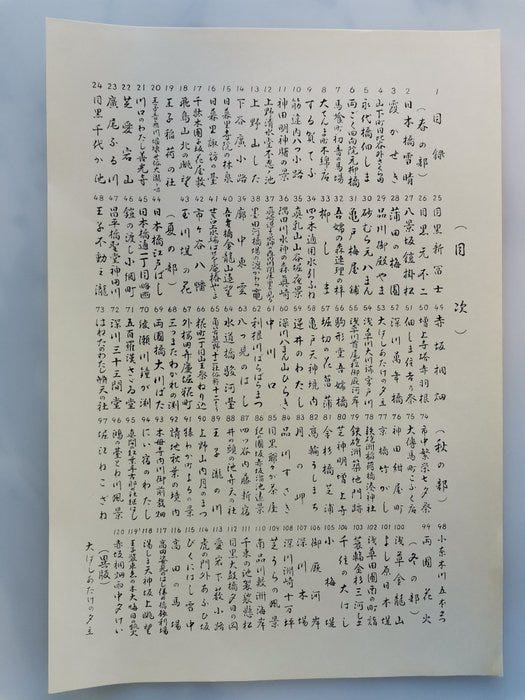 (目次)
1 目録
(春の部)
2 日本橋雪晴
3 霞かせき
4 山下町日比谷外さくら田
5 永代橋佃しま
6 両ごく回向院元柳橋
7 馬喰町初音の馬場
8 大てんま町木綿店
9 する賀てふ
10 筋違内八ツ小路
11 神田明神曙の景
12 上野清水堂不忍ノ池
13 上野山した
14 下谷廣小路
15 日暮里寺院の林泉
16 日暮里諏訪の臺
17 千駄木團子坂花屋敷
18 飛鳥山北の眺望
19 王子稲荷の社
20 王子音無川堰埭世俗大瀧ト唱
21 川口のわたし善光寺
22 芝愛宕山
23 廣尾ふる川
24 目黒千代か池
25 目黒新冨士
26 目黒元不二
27 八景坂鎧掛松
28 蒲田の梅園
29 品川御殿やま
30 砂むら元八まん
31 亀戸梅屋舗
32 吾嬬の森連理の梓
33 柳しま
34 四つ木通用水引ふね
35 真乳山山谷堀夜景
36 隅田川水神の森真崎
37 真崎辺より水神の森内川関屋の里を見る図
38 墨田河橋場の渡かわら竈
39 廓中東雲
40 吾妻橋金龍山遠望
41 せき口上水端はせを庵椿やま
42 市ヶ谷八幡
43 玉川堤の花
(夏の部)
44 日本橋江戸ばし
45 日本橋通一丁目略図
46 鎧の渡し小網町
47 昌平橋聖堂神田川
48 王子不動之瀧
49 赤坂桐畑
50 増上寺塔赤羽根
51 佃しま住吉の祭
52 深川萬年橋
53 大はしあたけの夕立
54 浅草川大川端宮戸川
55 浅草川首尾の松御厩河岸
56 駒形堂吾嬬橋
57 堀切の花菖蒲
58 亀戸天神境内
59 逆井のわたし
60 深川八まん山ひらき
61 中川口
62 利根川ばらばらまつ
63 八つ見のはし
64 水道橋駿河臺
65 角筈熊野十二社俗称十二そう
66 糀町一丁目山王祭ねり込
67 外桜田弁慶堀糀町
68 三つまたわかれの淵
69 両国橋大川ばた
70 綾瀬川鐘か淵
71 五百羅漢さゞゐ堂
72 深川三十三間堂
73 はねたのわたし弁天の社
(秋の部)
74 市中繁栄七夕祭
75 大傳馬町こふく店
76 神田紺屋町
77 京橋竹がし
78 鉄炮洲稲荷橋湊神社
79 鉄炮洲築地門跡
80 芝神明増上寺
81 金杉橋芝浦
82 高輪うしまち
83 月の岬
84 品川すさき
85 目黒爺々が茶屋
86 紀の国坂赤坂溜池遠景
87 四ツ谷内藤新宿
88 井の頭の池弁天の社
89 王子瀧の川
90 上野山内月のまつ
91 猿わか町よるの景
92 請地秋葉の境内
93 木母寺内川御前栽畑
94 にい宿のわたし
95 真間の紅葉手古那の社継はし
96 鴻の臺とね川風景
97 堀江ねこざね
98 小奈木川五本まつ
99 両國花火
(冬の部)
100 浅草金龍山
101 よし原日本堤
102 浅草田圃酉の町詣
103 蓑輪金杉三河しま
104 千住の大はし
105 小梅堤
106 御厩河岸
107 深川木場
108 深川洲崎十万坪
109 芝うらの風景
110 南品川鮫洲海岸
111 千束の池袈裟懸松
112 目黒太鼓橋夕日の岡
113 愛宕下藪小路
114 虎の門外あふひ坂
115 びくにはし雪中
116 高田の馬場
117 高田姿見のはし俤の橋砂利場
118 湯しま天神坂上眺望
119 王子装束ゑの木大晦日の狐火
120 赤坂桐畑雨中夕けい
(異版)
大はしあたけの夕立